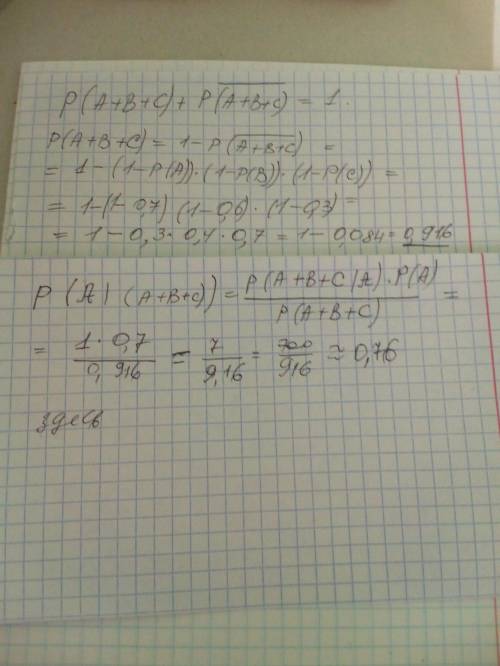 P(A+B+C) + P(\overline{A+B+C}) = 1.
P(A+B+C) = 1 - P(\overline{A+B+C}) =
= 1 - (1-P(A))·(1-P(B))·(1-P(C)) =
= 1-(1-0,7) (1-0,6)·(1-0,3) =
= 1 - 0,3 · 0,4 · 0,7 = 1 - 0,084 = 0,916
P (A | (A+B+C)) = P(A+B+C|A)·P(A) / P(A+B+C) =
= 1·0,7 / 0,916 = 7 / 9,16 = 700 / 916 ≈ 0,76
здесь